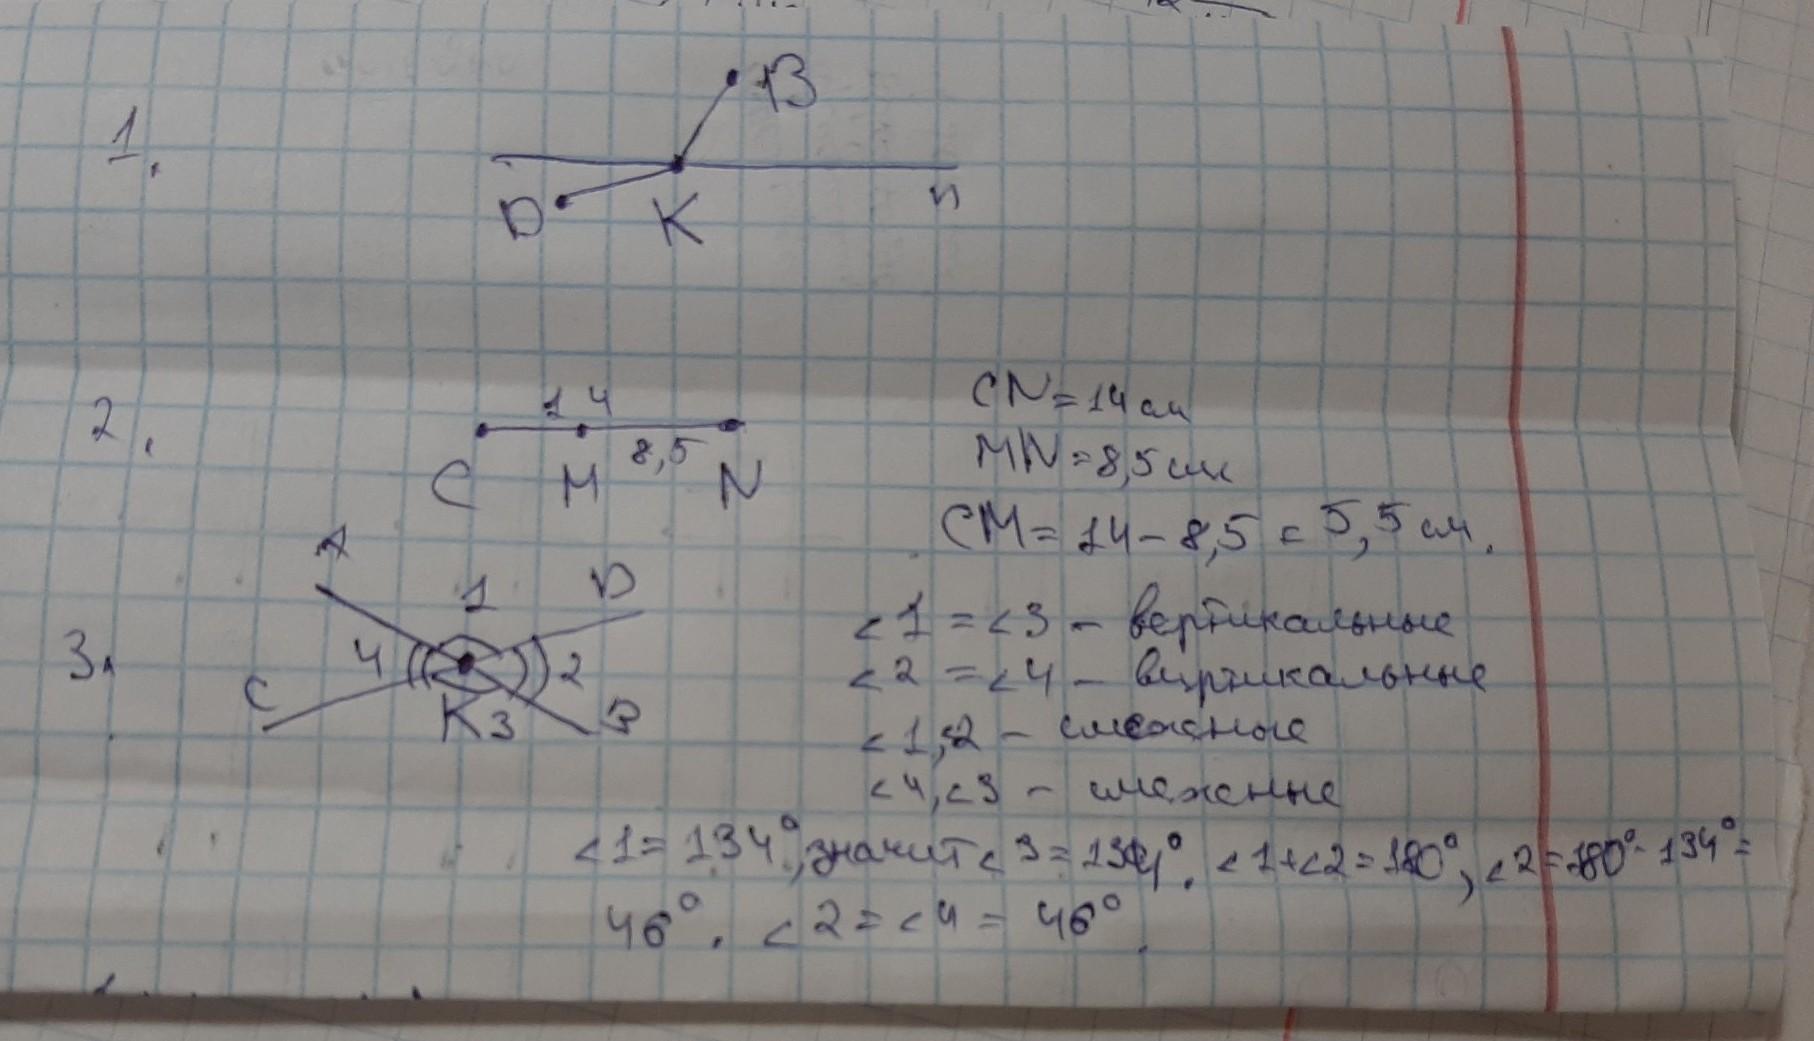 1.
B
D K n
2.
14
8,5
C M N
CN = 14 см
MN = 8,5 см
CM = 14 - 8,5 = 5,5 см.
3.
A 1 D
4 2
C K 3 B
<1 = <3 - вертикальные
<2 = <4 - виртикальные
<1, <2 - смежные
<4, <3 - смежные
<1 = 134°, значит <3 = 134°. <1 + <2 = 180°, <2 = 180° - 134° =
46°. <2 = <4 = 46°.